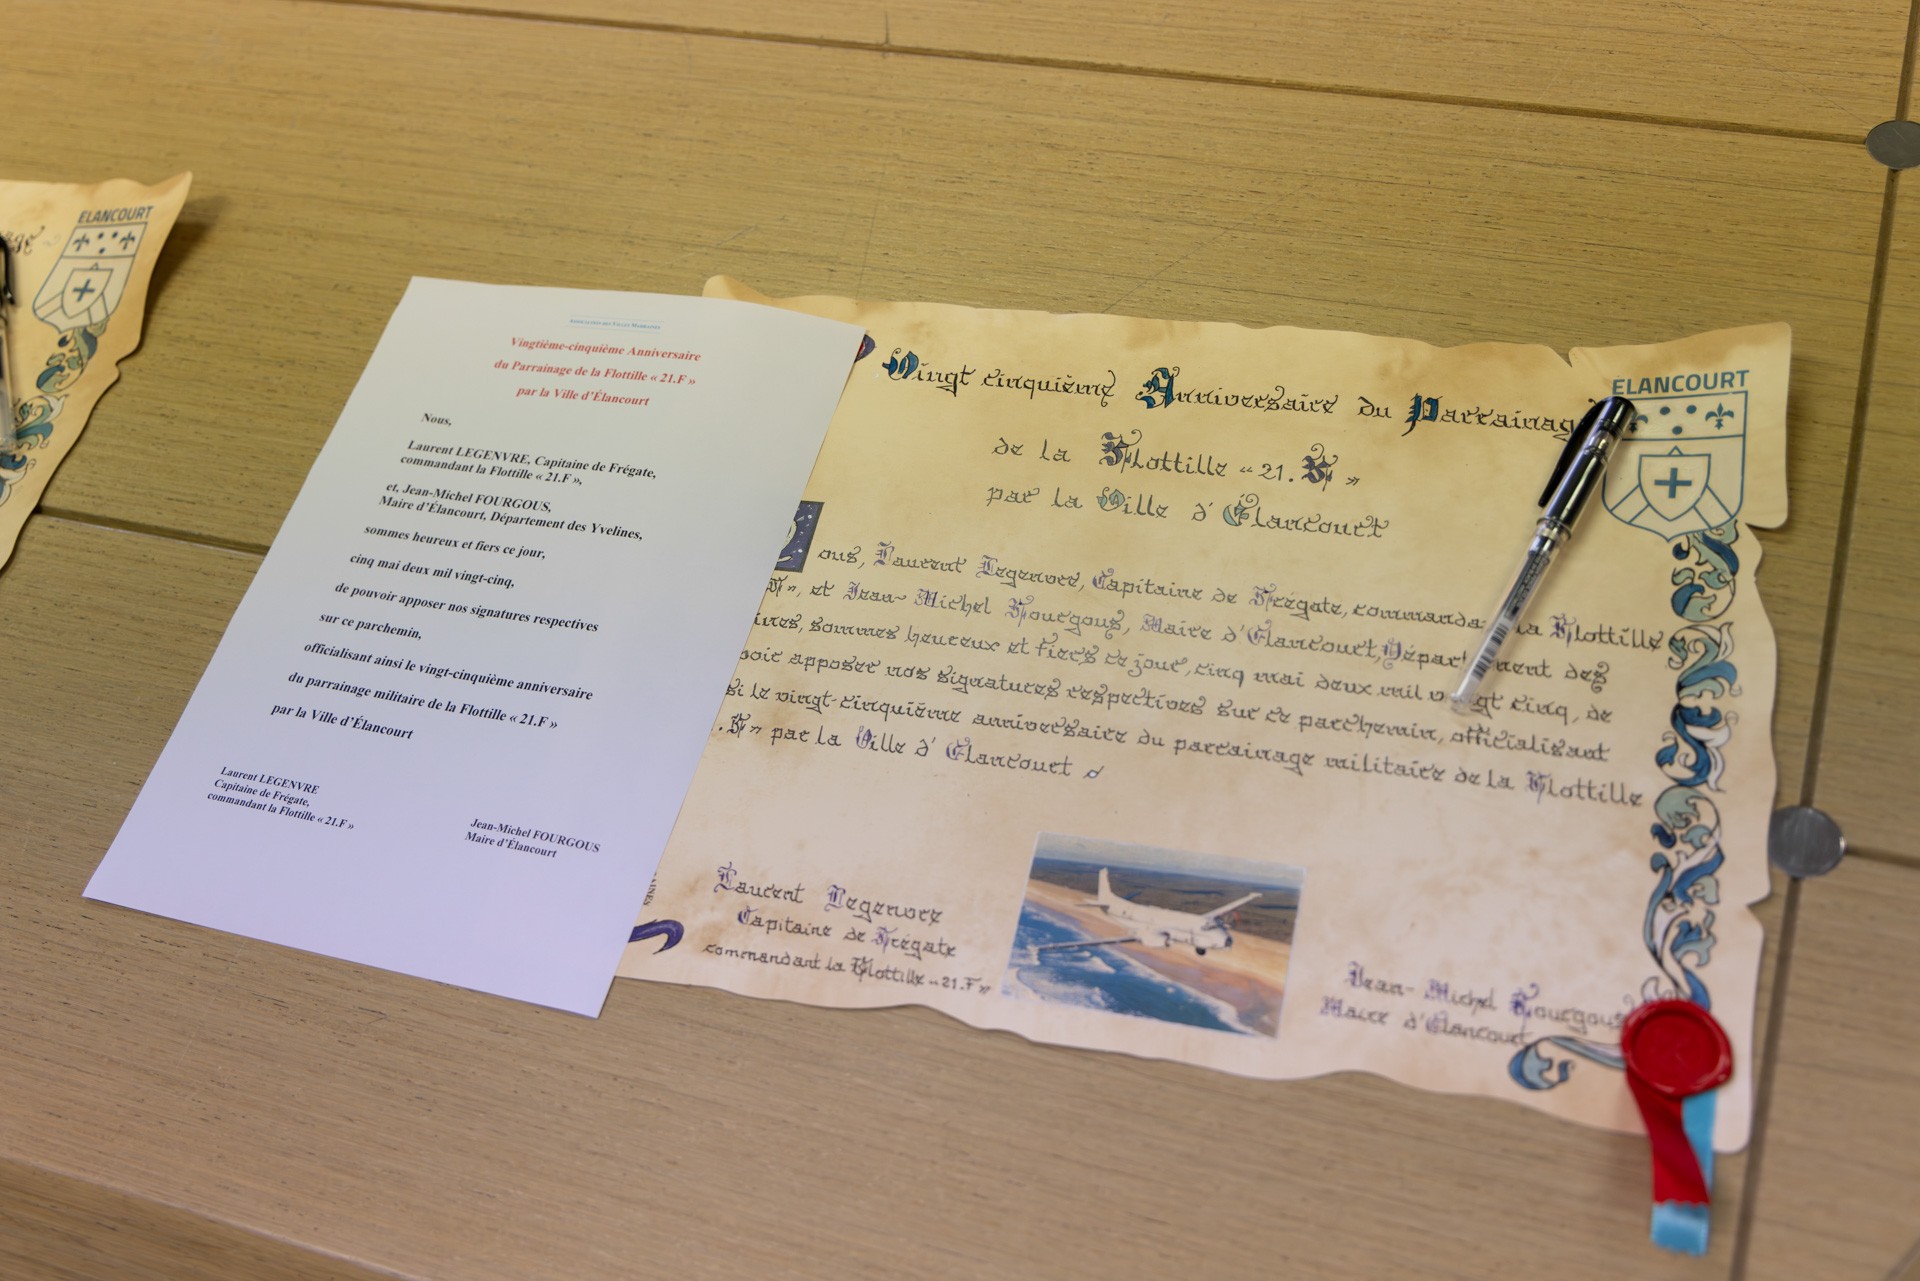 ELANCOURT
ASSOCIATION DES VILLES MARRAINES
Vingtième-cinquième Anniversaire
du Parrainage de la Flottille « 21.F »
par la Ville d’Élancourt
Nous,
Laurent LEGENVRE, Capitaine de Frégate,
commandant la Flottille « 21.F »,
et, Jean-Michel FOURGOUS,
Maire d’Élancourt, Département des Yvelines,
sommes heureux et fiers ce jour,
cinq mai deux mil vingt-cinq,
de pouvoir apposer nos signatures respectives
sur ce parchemin,
officialisant ainsi le vingt-cinquième anniversaire
du parrainage militaire de la Flottille « 21.F »
par la Ville d’Élancourt
Laurent LEGENVRE
Capitaine de Frégate,
commandant la Flottille « 21.F »
Jean-Michel FOURGOUS
Maire d’Élancourt
Vingt cinquième Anniversaire du Parrainag
de la Flottille « 21.F »
par la Ville d'Élancourt
ELANCOURT
ous, Laurent Legenvre, Capitaine de Frégate, commanda la Flottille
F», et Jean-Michel Fourgous, Maire d'Élancourt, Départ ment des
ines, sommes heureux et fiers ce jour, cinq mai deux mil vingt cinq, de
voir apposer nos signatures respectives sur ce parchemin, officialisant
si le vingt-cinquième anniversaire du parrainage militaire de la Flottille
.F» par la Ville d'Élancourt
Laurent Legenvre
Capitaine de Frégate
commandant la Flottille «21.F»
Jean-Michel Fourgous
Maire d'Élancourt